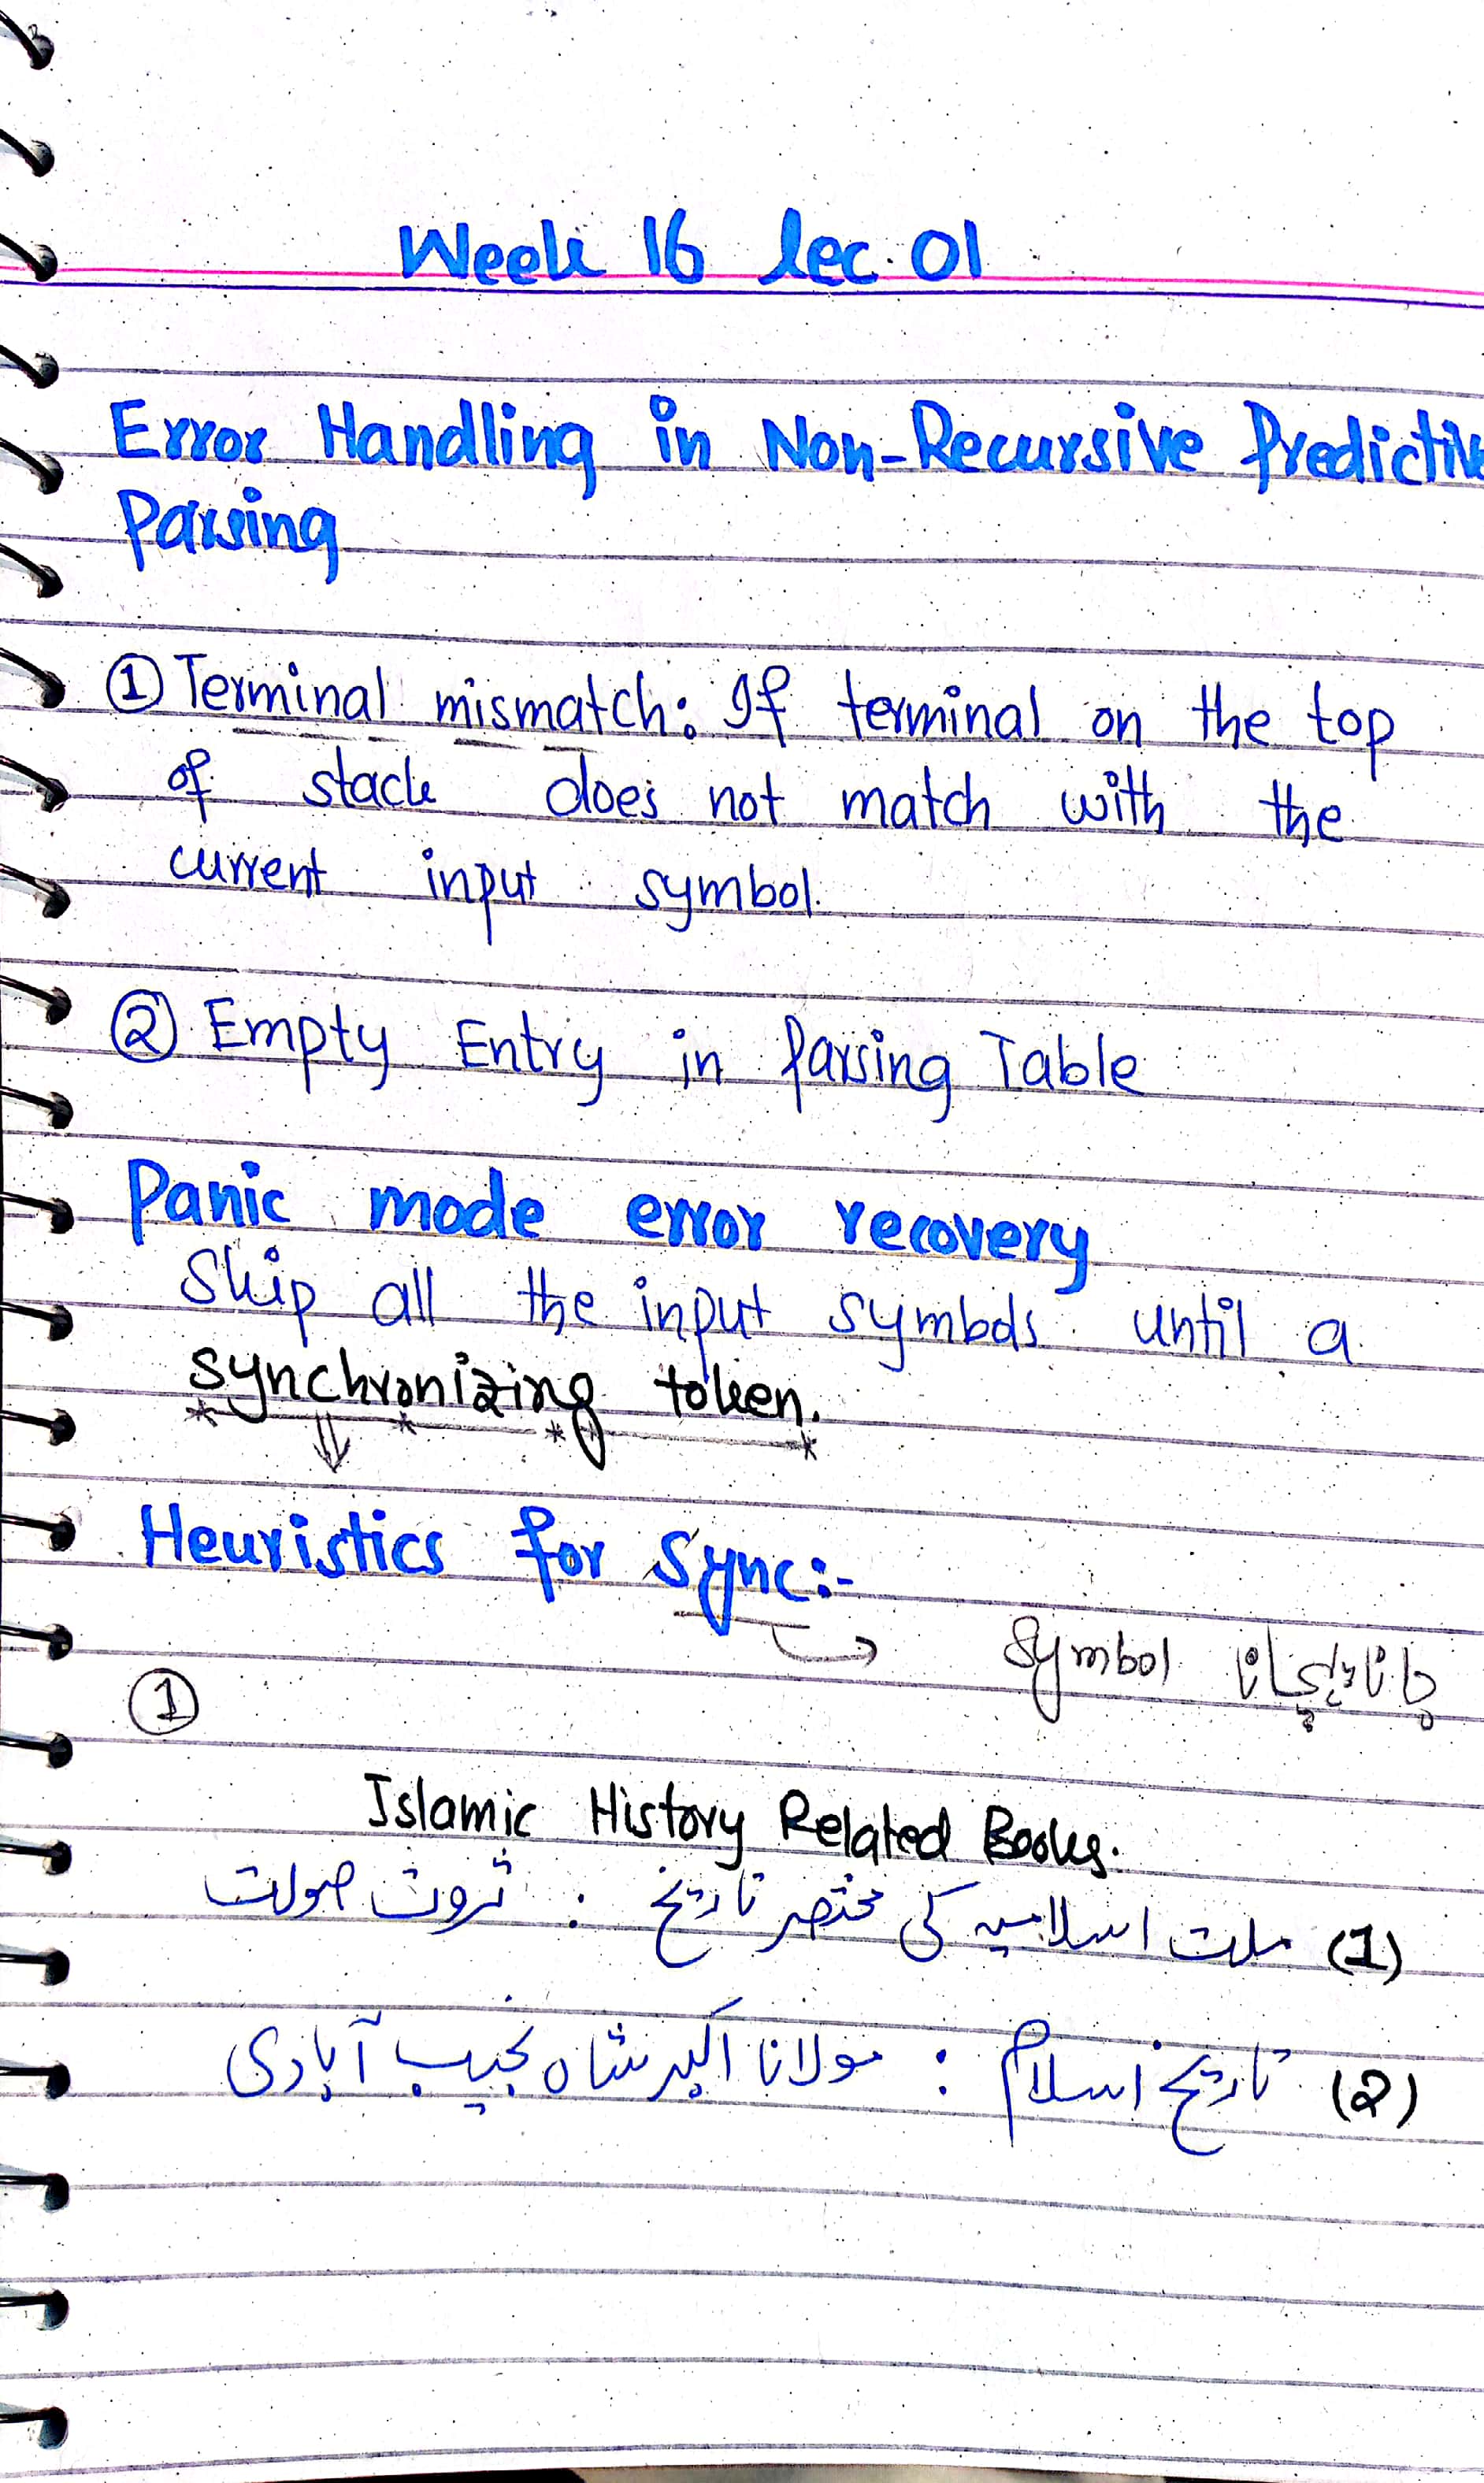 Week 16 lec. 01
Error Handling in Non-Recursive Predictive
Parsing
① Terminal mismatch: If terminal on the top
of stack does not match with the
current input symbol.
② Empty Entry in Parsing Table
Panic mode error recovery
Skip all the input symbols until a
synchronizing token.
Heuristics for Sync:-
Symbol جانا پہچانا
①
Islamic History Related Books.
(1) ملت اسلامیہ کی مختصر تاریخ : ثروت صولت
(2) تاریخ اسلام : مولانا اکبر شاہ نجیب آبادی